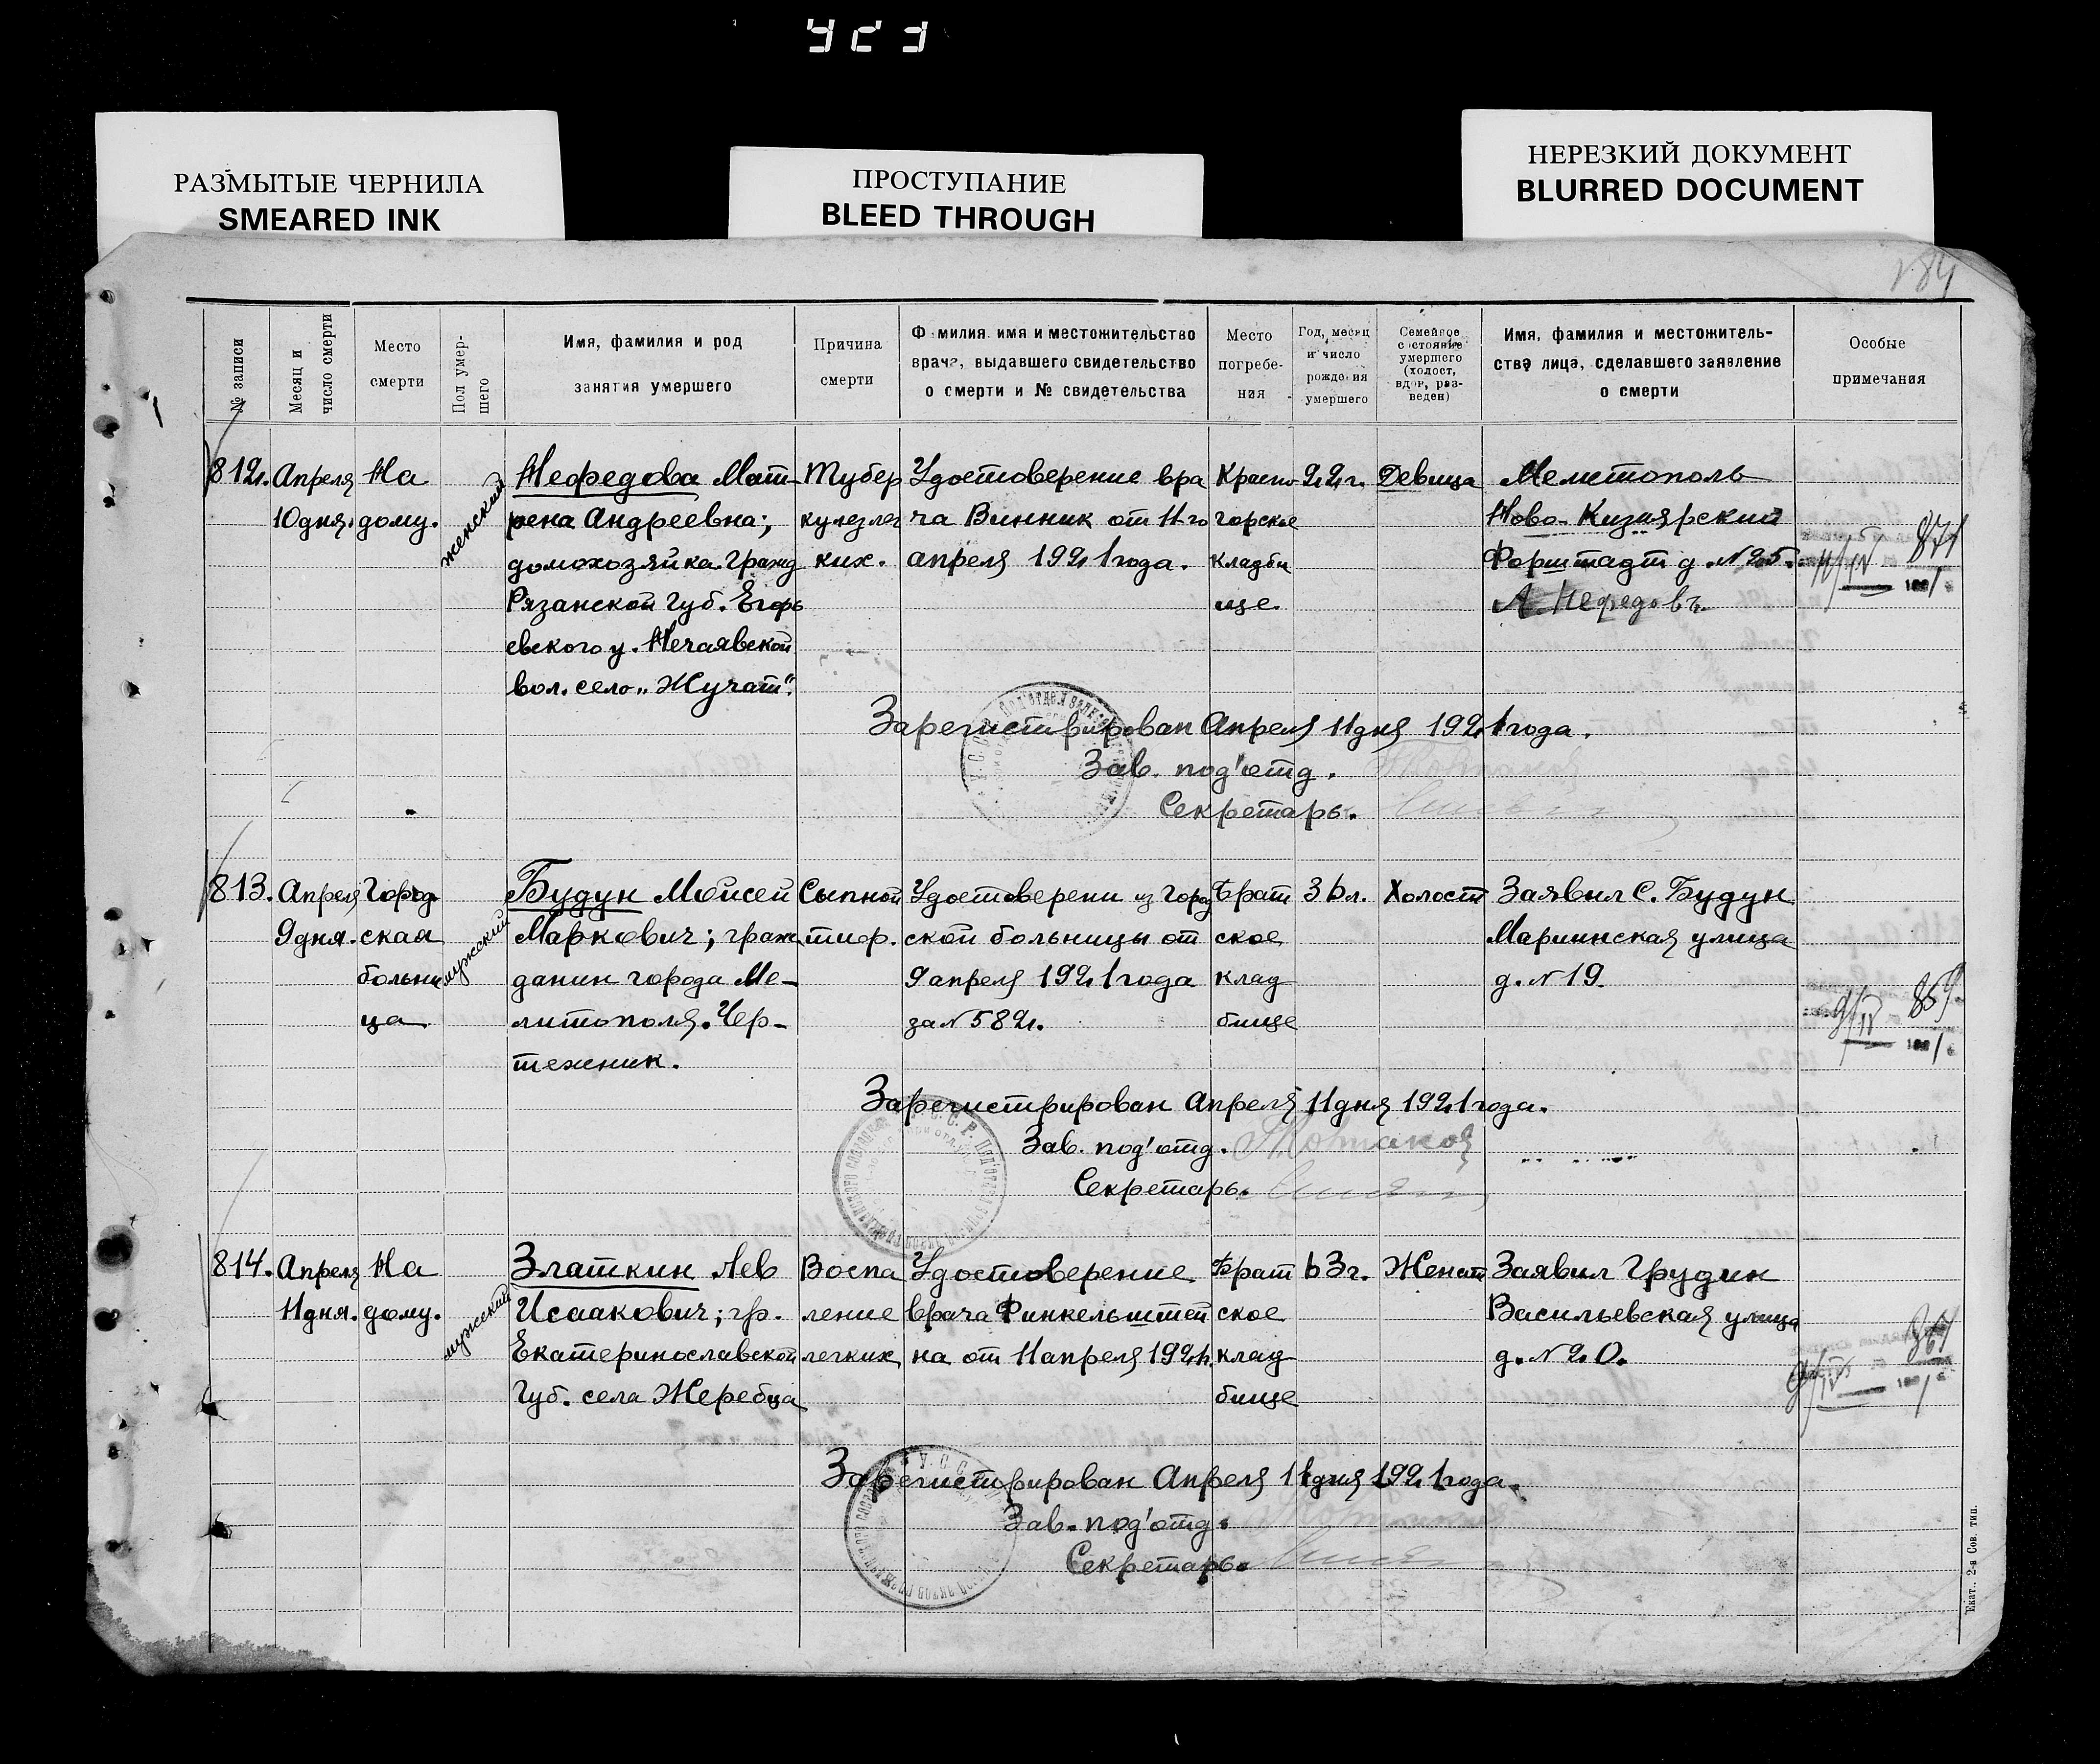 РАЗМЫТЫЕ ЧЕРНИЛА
SMEARED INK
ПРОСТУПАНИЕ
BLEED THROUGH
НЕРЕЗКИЙ ДОКУМЕНТ
BLURRED DOCUMENT
184
№ записи
Месяц и
число смерти
Место
смерти
Пол умер-
шего
Имя, фамилия и род
занятия умершего
Причина
смерти
Фамилия имя и местожительство
врача, выдавшего свидетельство
о смерти и № свидетельства
Место
погребе-
ния
Год, месяц
и число
рождения
умершего
Семейное
состояние
умершего
(холост,
вдов, раз-
веден)
Имя, фамилия и местожитель-
ства лица, сделавшего заявление
о смерти
Особые
примечания
812.
Апреля
10 дня.
На
дому.
женский
Нефедова Мат-
рена Андреевна;
домохозяйка. Гражд
Рязанской Губ. Егорь
евского у. Нечаявской
вол. село „Жучат".
Тубер
кулез лег
ких.
Удостоверение вра
ча Винник от 11-го
апреля 1921 года.
Красно
горское
кладби
ще
22 г.
Девица
Мелитополь
Ново-Кизиярский
Форштадт д. №25.
А. Нефедовъ
11/IV 871
Зарегистрирован Апреля 11 дня 1921 года.
Зав. под'отд.
Секретарь.
813.
Апреля
9 дня.
Город
ская
больни
ца
мужский
Будун Мойсей
Маркович; граж
данин города Ме-
литополя. Чер-
теженик.
Сыпной
тиф.
Удостоверени из Город
ской больницы от
9 апреля 1921 года
за № 582.
Брат
ское
клад
бище
36 л.
Холост
Заявил С. Будун
Мариинская улица
д. № 19.
9/IV 859
Зарегистрирован Апреля 11 дня 1921 года.
Зав. под'отд.
Секретарь.
814.
Апреля
11 дня.
На
дому.
мужский
Златкин Лев
Исаакович; гр.
Екатеринославской
Губ. села Жеребца
Воспа
ление
легких
Удостоверение
врача Финкельштей
на от 11 апреля 1921 г.
Брат
ское
клад
бище
63 г.
Женат
Заявил Грудин
Васильевская улица
д. № 20.
Зарегистрирован Апреля 11 дня 1921 года.
Зав. под'отд.
Секретарь.
Екат.. 2-я Сов. тип.